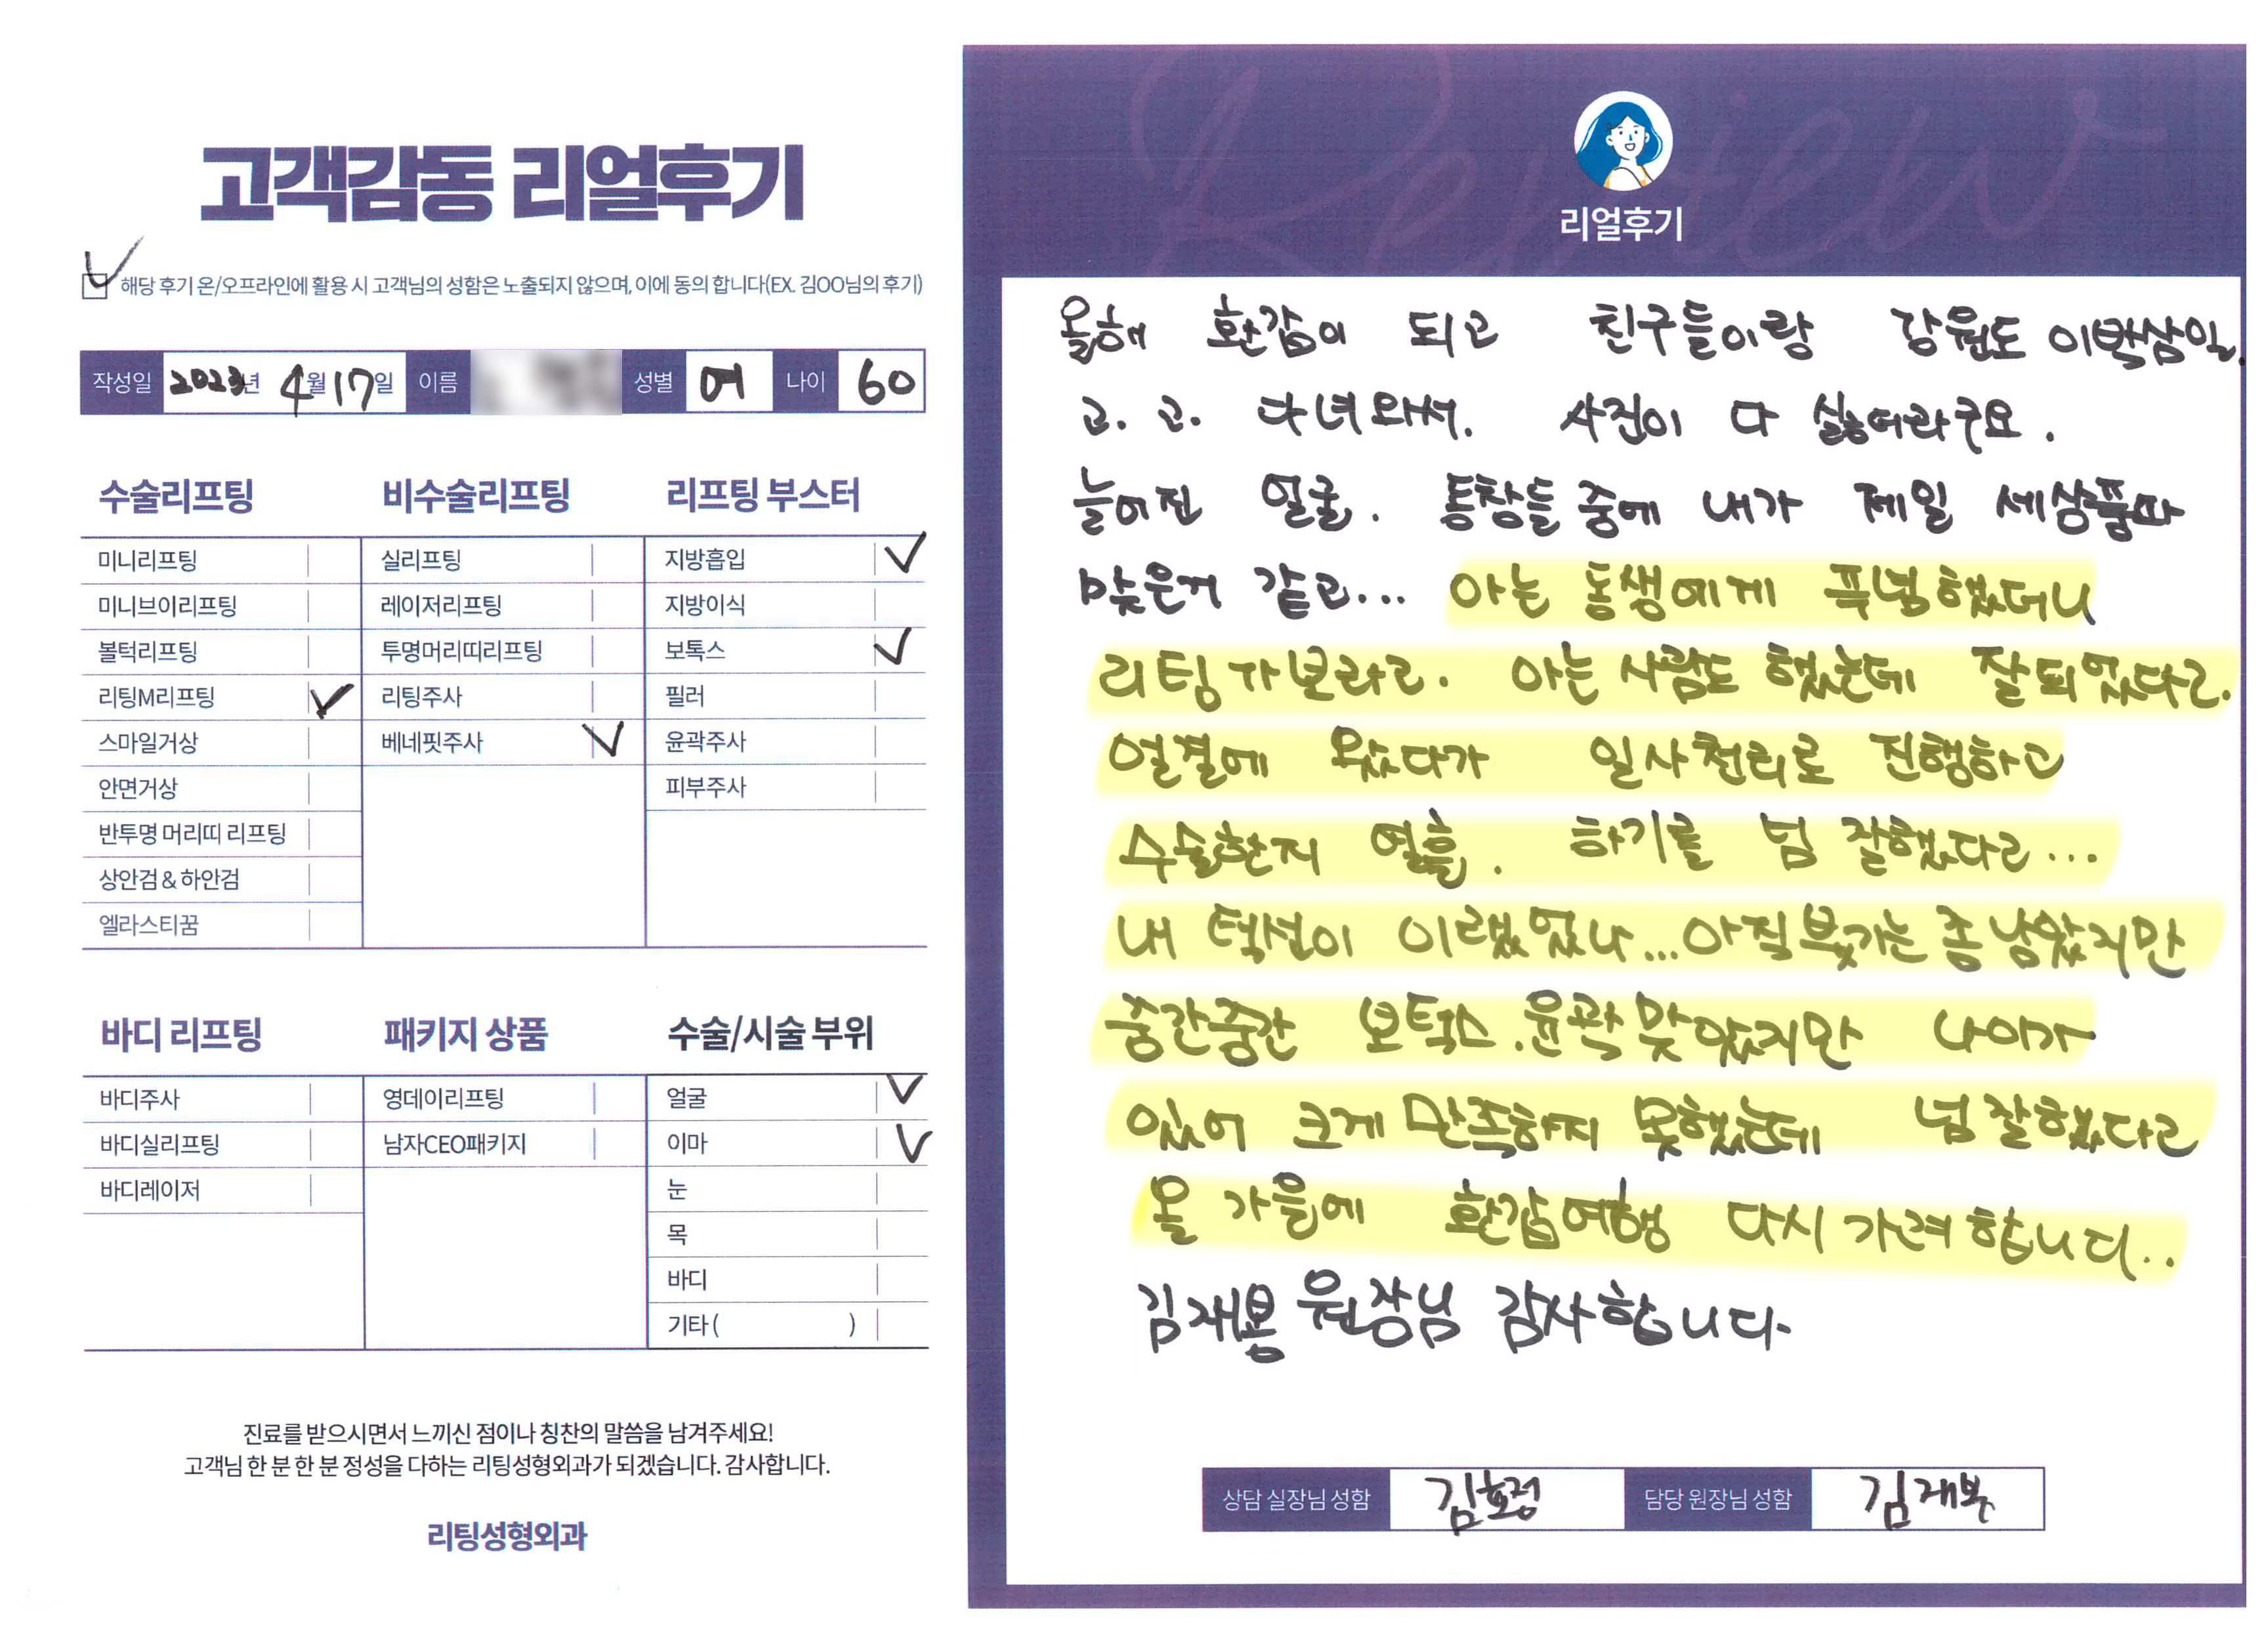 고객감동 리얼후기
해당 후기 온/오프라인에 활용 시 고객님의 성함은 노출되지 않으며, 이에 동의 합니다(EX. 김OO님의 후기)
작성일 2023년 4월 17일 이름 성별 여 나이 60
수술리프팅 비수술리프팅 리프팅 부스터
미니리프팅 실리프팅 지방흡입
미니브이리프팅 레이저리프팅 지방이식
볼턱리프팅 투명머리띠리프팅 보톡스
리팅M리프팅 리팅주사 필러
스마일거상 베네핏주사 윤곽주사
안면거상 피부주사
반투명 머리띠 리프팅
상안검 & 하안검
엘라스티꿈
바디 리프팅 패키지 상품 수술/시술 부위
바디주사 영데이리프팅 얼굴
바디실리프팅 남자CEO패키지 이마
바디레이저 눈
목
바디
기타 ( )
진료를 받으시면서 느끼신 점이나 칭찬의 말씀을 남겨주세요!
고객님 한 분 한 분 정성을 다하는 리팅성형외과가 되겠습니다. 감사합니다.
리팅성형외과
Review
리얼후기
올해 환갑이 되고 친구들이랑 강원도 이박삼일
고. 고. 다녀와서. 사진이 다 싫어라구요.
늘어진 얼굴. 동창들 중에 내가 제일 세상풍파
맞은거 같고... 아는 동생에게 푸념했더니
리팅가보라고. 아는 사람도 했는데 잘되었다고.
얼결에 왔다가 일사천리로 진행하고
수술한지 열흘. 하기를 넘 잘했다고...
내 턱선이 이랬었나...아직 붓기는 좀 남았지만
중간중간 보톡스.윤곽 맞았지만 나이가
있어 크게 만족하지 못했는데 넘 잘했다고
올 가을에 환갑여행 다시 가려 합니다..
김재봉 원장님 감사합니다.
상담 실장님 성함 김효정 담당 원장님 성함 김재봉